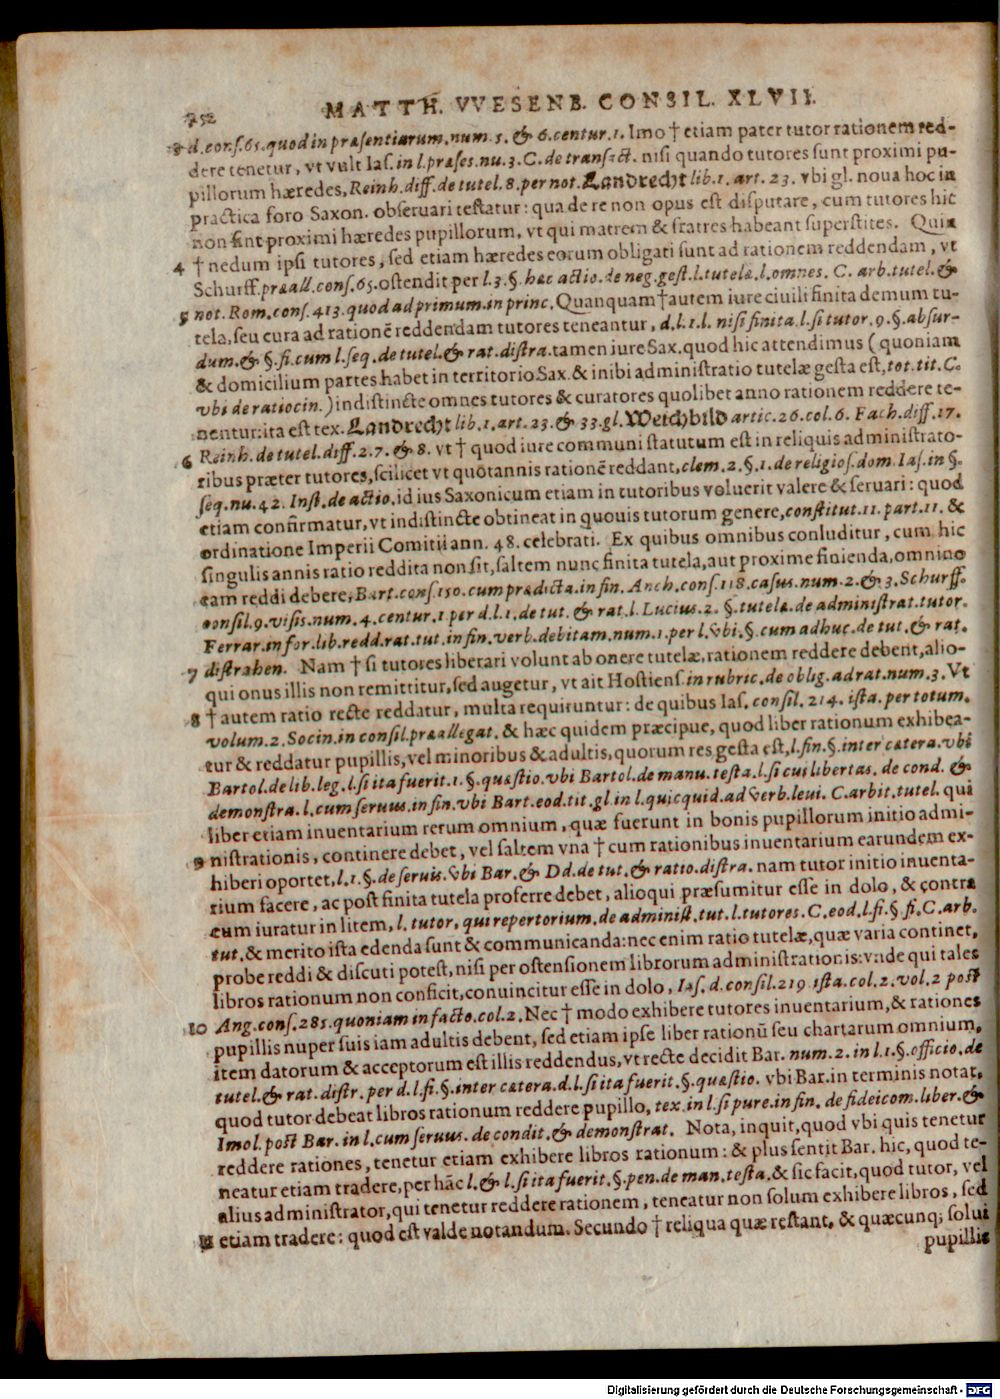 752
MATTH. VVESENB. CONSIL. XLVII.
3 d. cons. 65. quod in præsentiarum. num. 5. & 6. centur. 1. Imo † etiam pater tutor rationem red-
dere tenetur, vt vult Ias. in l. præses. nu. 3. C. de transact. nisi quando tutores sunt proximi pu-
pillorum hæredes, Reinh. diff. de tutel. 8. per not. Landrecht lib. 1. art. 23. vbi gl. noua hoc in
practica foro Saxon. obseruari testatur: qua de re non opus est disputare, cum tutores hic
non sint proximi hæredes pupillorum, vt qui matrem & fratres habeant superstites. Quin
4 † nedum ipsi tutores, sed etiam hæredes eorum obligati sunt ad rationem reddendam, vt
Schurff. præall. cons. 65. ostendit per l. 3. §. hæc actio. de neg. gest. l. tutelæ. l. omnes. C. arb. tutel. &
5 not. Rom. cons. 413. quod ad primum. in princ. Quanquam † autem iure ciuili finita demum tu-
tela, seu cura ad rationē reddendam tutores teneantur, d. l. 1. l. nisi finita. l. si tutor. 9. §. absur-
dum. & §. fi. cum l. seq. de tutel. & rat. distra. tamen iure Sax. quod hic attendimus (quoniam
& domicilium partes habet in territorio Sax. & inibi administratio tutelæ gesta est, tot. tit. C.
vbi de ratiocin.) indistincte omnes tutores & curatores quolibet anno rationem reddere te-
nentur: ita est tex. Landrecht lib. 1. art. 23. & 33. gl. Weichbild artic. 26. col. 6. Fach. diff. 17.
6 Reinh. de tutel. diff. 2. 7. & 8. vt † quod iure communi statutum est in reliquis administrato-
ribus præter tutores, scilicet vt quotannis rationē reddant, clem. 2. §. 1. de religios. dom. Ias. in §.
seq. nu. 42. Inst. de actio. id ius Saxonicum etiam in tutoribus voluerit valere & seruari: quod
etiam confirmatur, vt indistincte obtineat in quouis tutorum genere, constitut. 11. part. 11. &
ordinatione Imperii Comitii ann. 48. celebrati. Ex quibus omnibus conluditur, cum hic
singulis annis ratio reddita non sit, saltem nunc finita tutela, aut proxime finienda, omnino
eam reddi debere, Bart. cons. 150. cum prædicta. in fin. Anch. cons. 118. casus. num. 2. & 3. Schurff.
consil. 9. visis. num. 4. centur. 1. per d. l. 1. de tut. & rat. l. Lucius. 2. §. tutela. de administrat. tutor.
Ferrar. in for. lib. redd. rat. tut. in fin. verb. debitam. num. 1. per l. vbi. §. cum adhuc. de tut. & rat.
7 distrahen. Nam † si tutores liberari volunt ab onere tutelæ, rationem reddere debent, alio-
qui onus illis non remittitur, sed augetur, vt ait Hostiens. in rubric. de oblig. ad rat. num. 3. Vt
8 † autem ratio recte reddatur, multa requiruntur: de quibus Ias. consil. 214. ista. per totum.
volum. 2. Socin. in consil. præallegat. & hæc quidem præcipue, quod liber rationum exhibea-
tur & reddatur pupillis, vel minoribus & adultis, quorum res gesta est, l. fin. §. inter cætera. vbi
Bartol. de lib. leg. l. si ita fuerit. 1. §. quæstio. vbi Bartol. de manu. testa. l. si cui libertas. de cond. &
demonstra. l. cum seruus. in fin. vbi Bart. eod. tit. gl. in l. quicquid. ad verb. leui. C. arbit. tutel. qui
liber etiam inuentarium rerum omnium, quæ fuerunt in bonis pupillorum initio admi-
9 nistrationis, continere debet, vel saltem vna † cum rationibus inuentarium earundem ex-
hiberi oportet, l. 1. §. de seruis. vbi Bar. & Dd. de tut. & ratio. distra. nam tutor initio inuenta-
rium facere, ac post finita tutela proferre debet, alioqui præsumitur esse in dolo, & contra
eum iuratur in litem, l. tutor, qui repertorium. de administ. tut. l. tutores. C. eod. l. fi. §. fi. C. arb.
tut. & merito ista edenda sunt & communicanda: nec enim ratio tutelæ, quæ varia continet,
probe reddi & discuti potest, nisi per ostensionem librorum administrationis: vnde qui tales
libros rationum non conficit, conuincitur esse in dolo, Ias. d. consil. 219. ista. col. 2. vol. 2. post
10 Ang. cons. 285. quoniam in facto. col. 2. Nec † modo exhibere tutores inuentarium, & rationes
pupillis nuper suis iam adultis debent, sed etiam ipse liber rationū seu chartarum omnium,
item datorum & acceptorum est illis reddendus, vt recte decidit Bar. num. 2. in l. 1. §. officio. de
tutel. & rat. distr. per d. l. fi. §. inter cætera. d. l. si ita fuerit. §. quæstio. vbi Bar. in terminis notat,
quod tutor debeat libros rationum reddere pupillo, tex. in l. si pure. in fin. de fideicom. liber. &
Imol. post Bar. in l. cum seruus. de condit. & demonstrat. Nota, inquit, quod vbi quis tenetur
reddere rationes, tenetur etiam exhibere libros rationum: & plus sentit Bar. hic, quod te-
neatur etiam tradere, per hāc l. & l. si ita fuerit. §. pen. de man. testa. & sic facit, quod tutor, vel
alius administrator, qui tenetur reddere rationem, teneatur non solum exhibere libros, sed
11 etiam tradere: quod est valde notandum. Secundo † reliqua quæ restant, & quæcunq; solui
pupillis
Digitalisierung gefördert durch die Deutsche Forschungsgemeinschaft - DFG